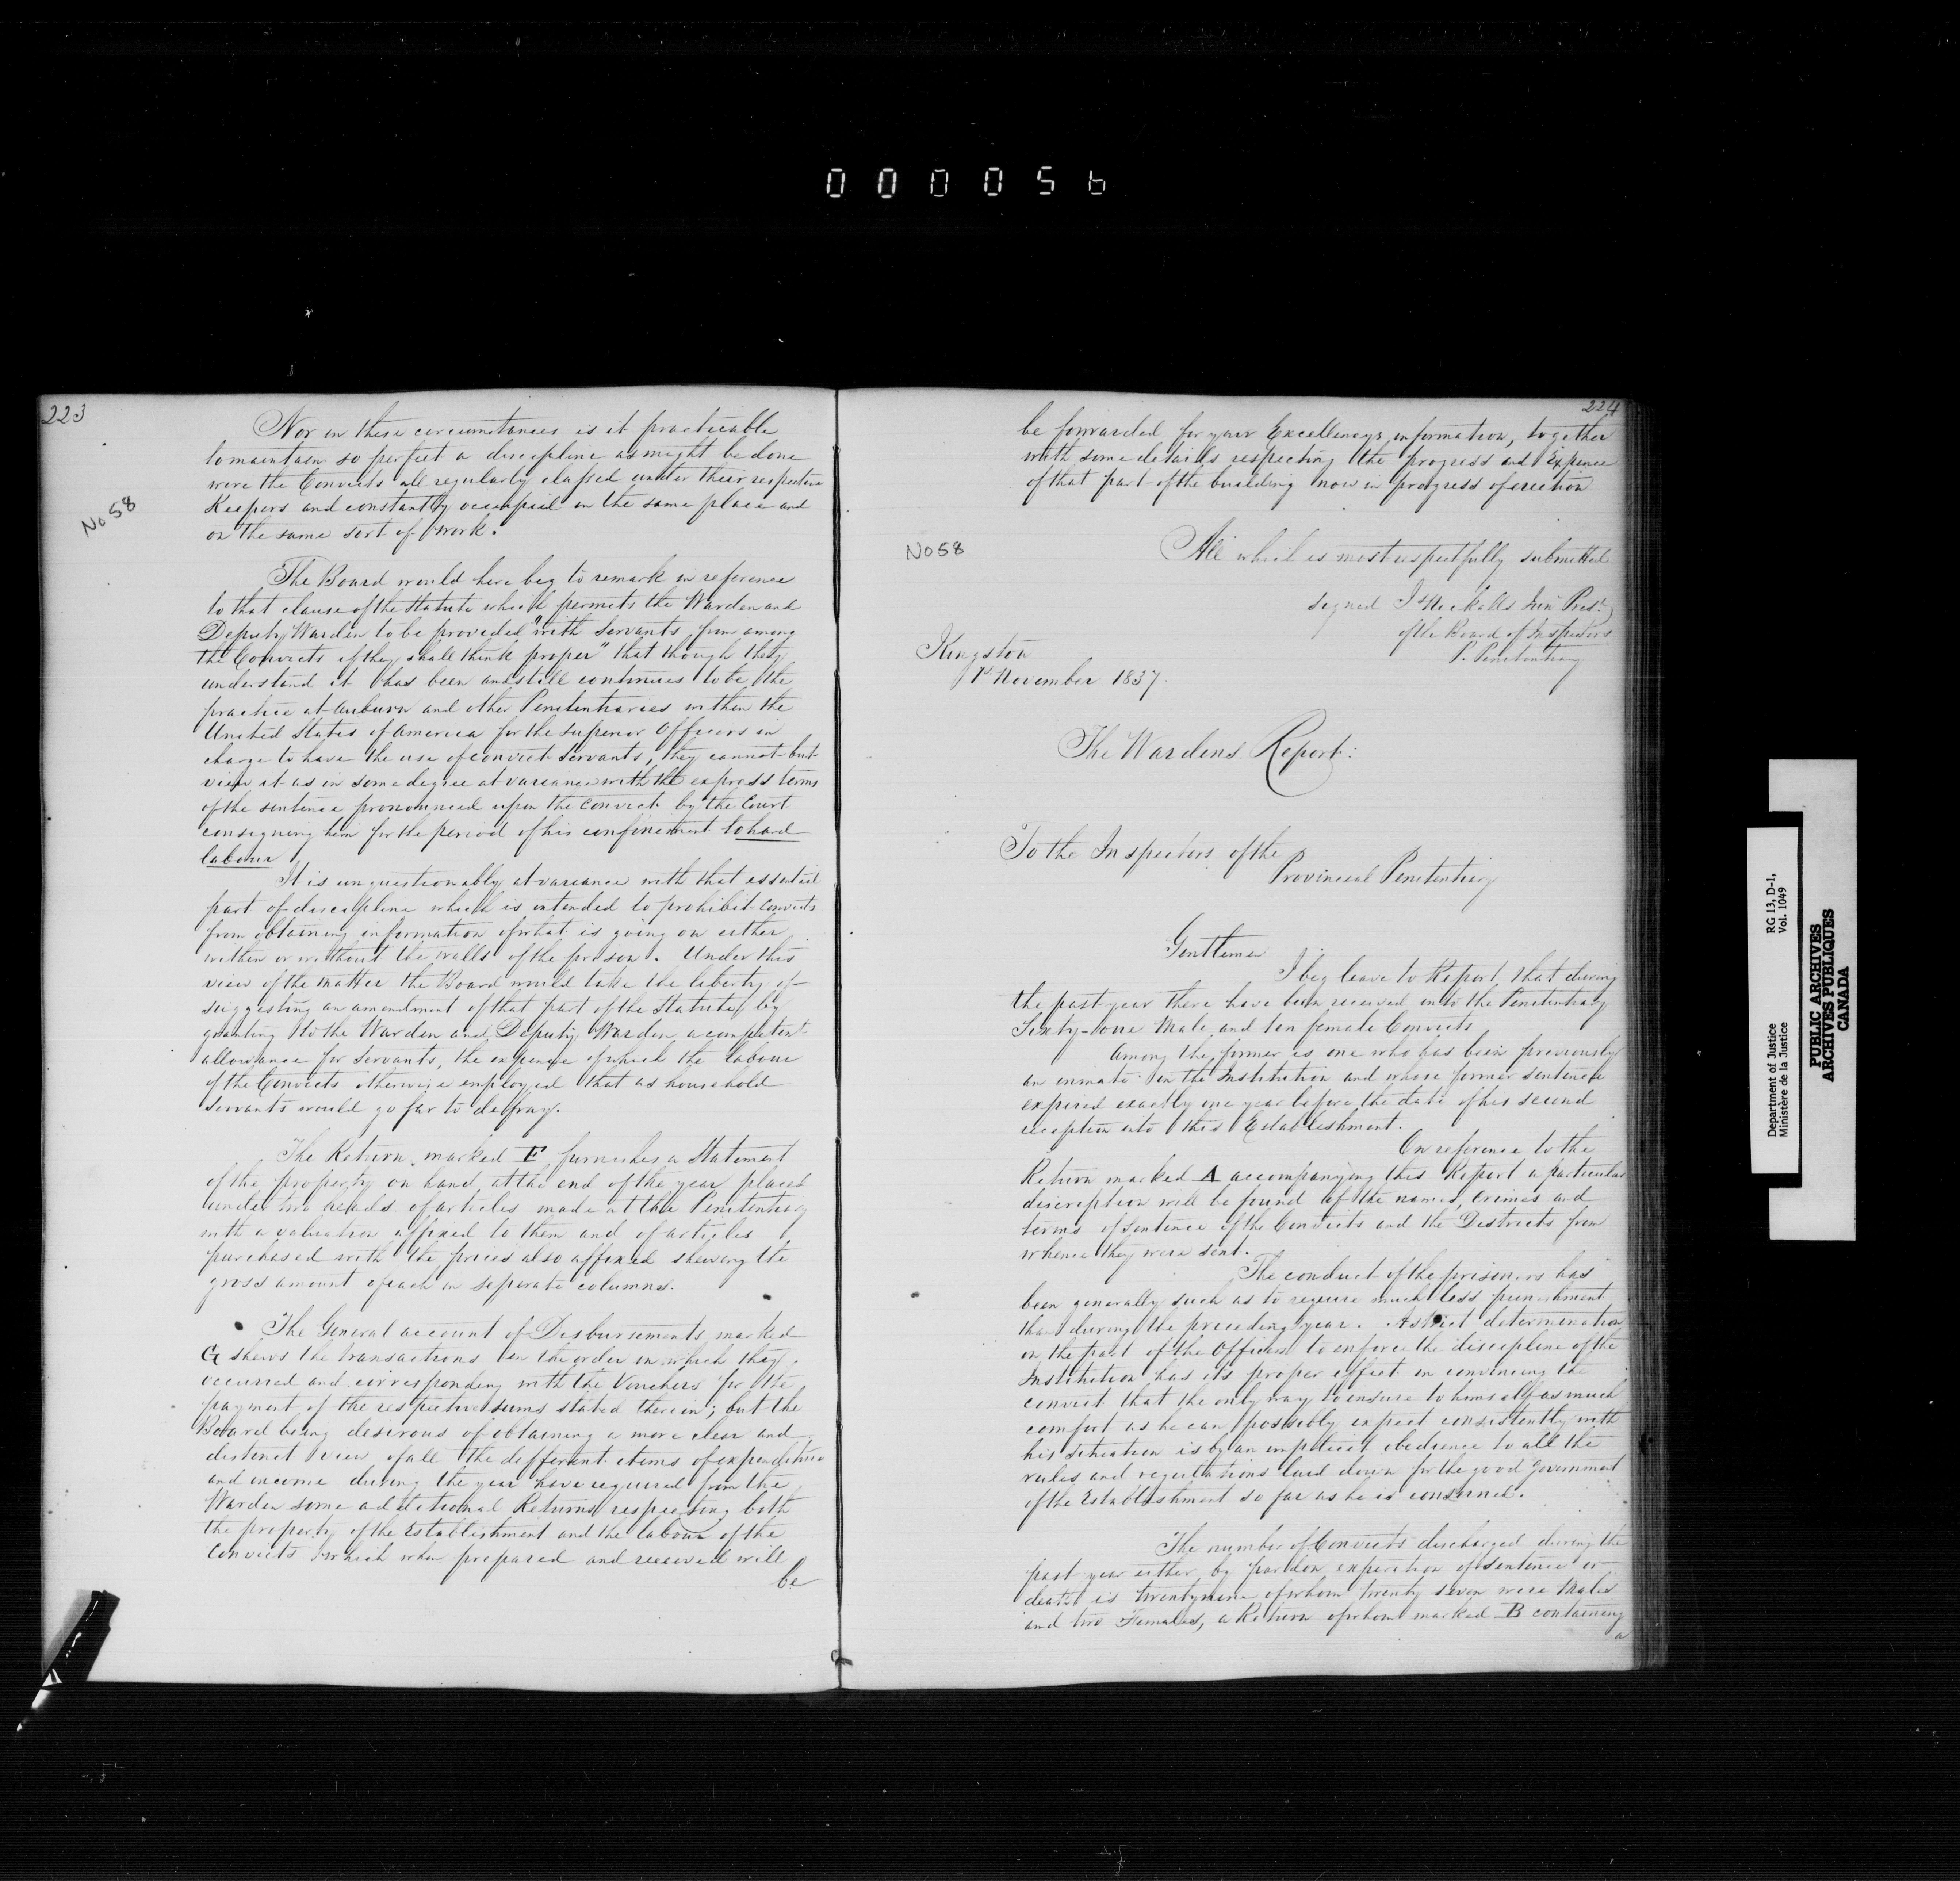 000056
223
No 58
Nor in these circumstances is it practicable
to maintain so perfect a discipline as might be done
were the Convicts all regularly classed under their respective
Keepers and constantly occupied in the same place and
on the same sort of work.
The Board would here beg to remark in reference
to that clause of the Statute which permits the Warden and
Deputy Warden to be provided "with Servants from among
the Convicts if they shall think proper" that though they
understand it has been and still continues to be the
practice at Auburn and other Penitentiaries within the
United States of America for the Superior Officers in
charge to have the use of convict Servants, they cannot but
view it as in some degree at variance with the express terms
of the sentence pronounced upon the Convict by the Court
consigning him for the period of his confinement to hard
labour
It is unquestionably at variance with that essential
part of discipline which is intended to prohibit convicts
from obtaining information of what is going on either
within or without the walls of the prison. Under this
view of the matter the Board would take the liberty of
suggesting an amendment of that part of the Statute by
granting to the Warden and Deputy Warden a competent
allowance for Servants, the expense of which the labour
of the Convicts otherwise employed that as household
Servants would go far to defray.
The Return marked F furnishes a Statement
of the property on hand at the end of the year placed
under two heads of articles made at the Penitentiary
with a valuation affixed to them and of articles
purchased with the prices also affixed shewing the
gross amount of each in separate columns.
The General account of Disbursements marked
G shews the transactions in the order in which they
occurred and corresponding with the Vouchers for the
payment of the respective sums stated therein; but the
Board being desirous of obtaining a more clear and
distinct view of all the different items of expenditure
and income during the year have required from the
Warden some additional Returns respecting both
the property of the Establishment and the labour of the
Convicts which when prepared and received will
be
224
be forwarded for your Excellencys information, together
with some details respecting the progress and Expence
of that part of the building now in progress of erection
No 58
All which is most respectfully submitted
signed Js Nickalls Junr Prest
of the Board of Inspectors
P. Penitentiary
Kingston
1st November 1837.
The Wardens Report:
To the Inspectors of the
Provincial Penitentiary
Gentlemen
I beg leave to Report that during
the past year there have been received into the Penitentiary
Sixty-one Male and ten female Convicts
Among the former is one who has been previously
an inmate in the Institution and whose former sentence
expired exactly one year before the date of his second
reception into this Establishment.
On reference to the
Return marked A accompanying this Report a particular
discription will be found of the names, crimes and
terms of Sentence of the Convicts and the Districts from
whence they were sent.
The conduct of the prisoners has
been generally such as to require much less punishment
than during the preceding year. A strict determination
on the part of the Officers to enforce the discipline of the
Institution has its proper effect in convincing the
convict that the only way to ensure to himself as much
comfort as he can possibly expect consistently with
his situation is by an implicit obedience to all the
rules and regulations laid down for the good Government
of the Establishment so far as he is concerned.
The number of Convicts discharged during the
past year either by pardon expiration of sentence or
death is twenty nine of whom twenty seven were Males
and two Females, a Return of whom marked B containing
a
Department of Justice
Ministère de la Justice
RG 13, D-1,
Vol. 1049
PUBLIC ARCHIVES
ARCHIVES PUBLIQUES
CANADA